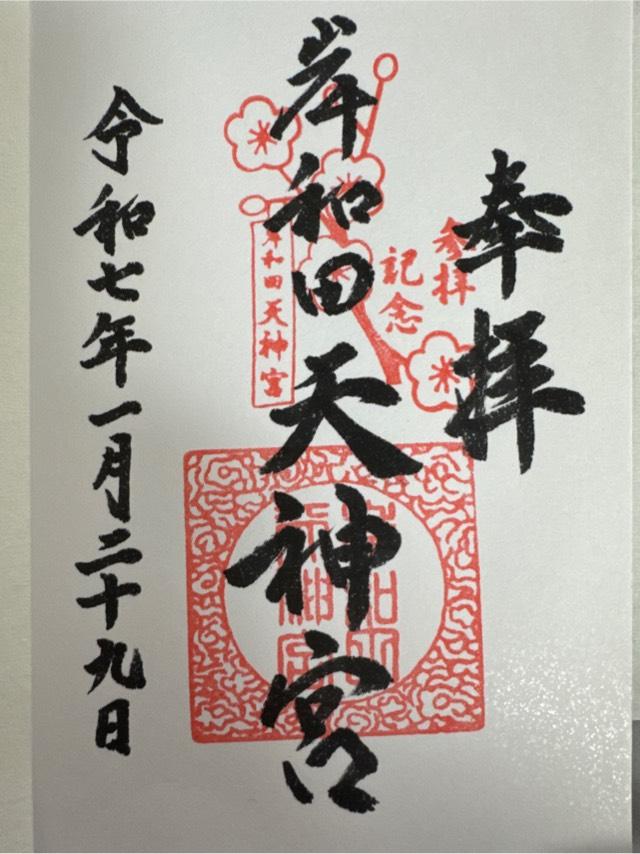 奉拝
参拝
記念
岸和田天神宮
岸和田天神宮
令和七年一月二十九日